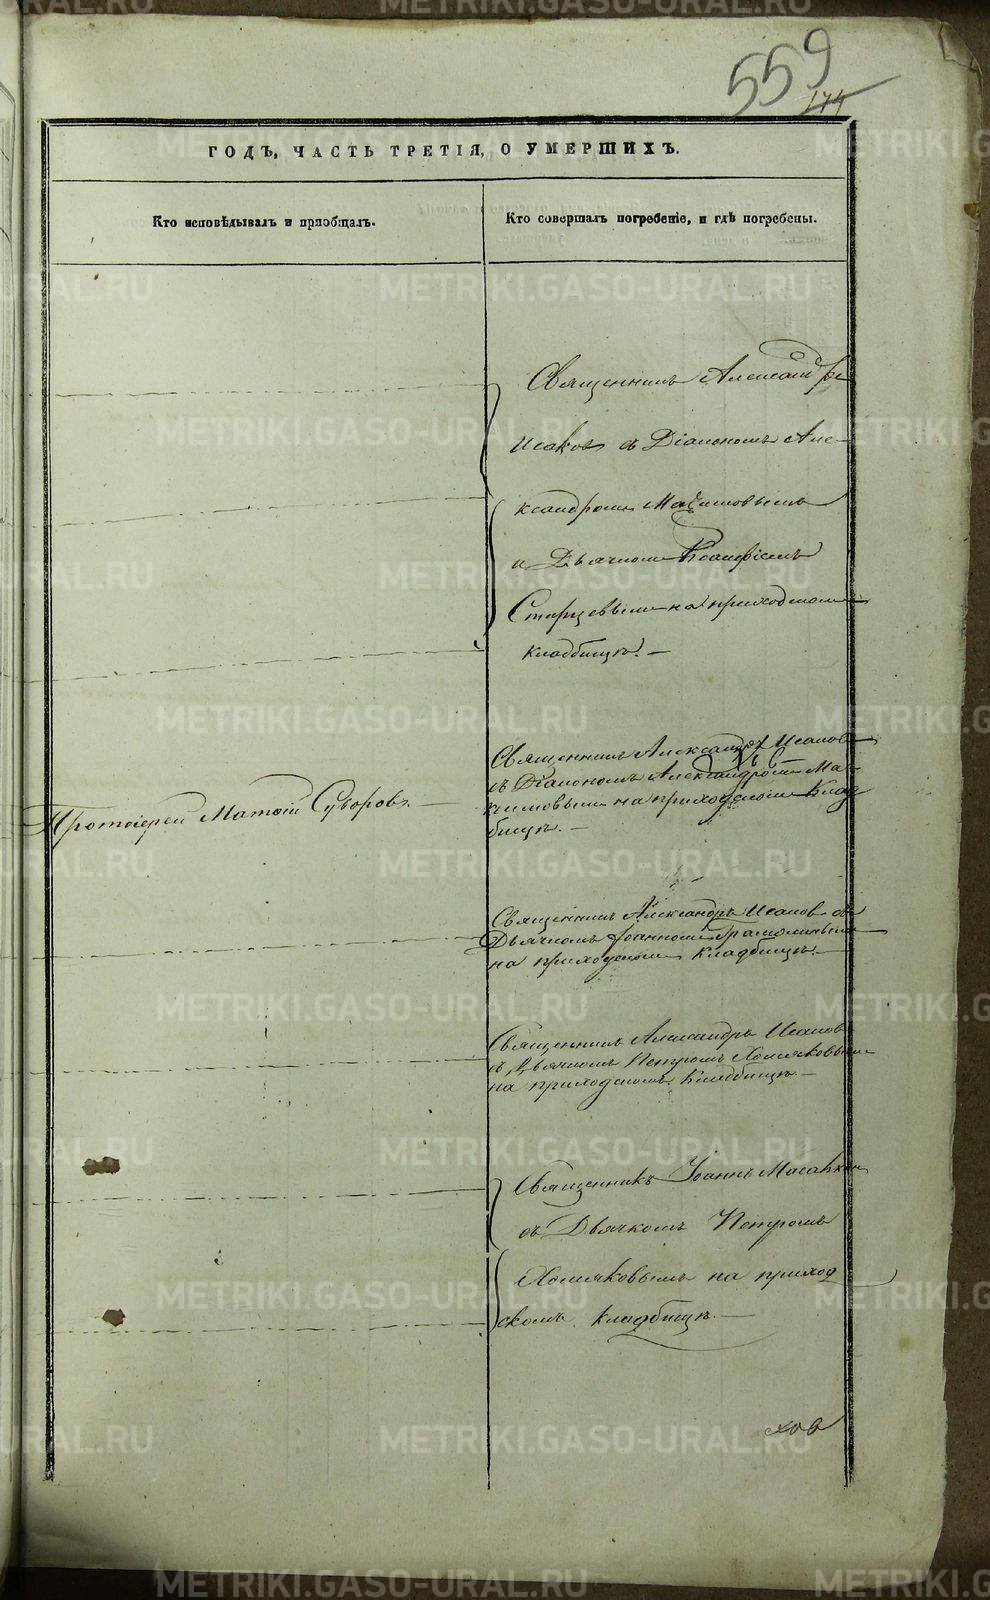 559
174
ГОДЪ, ЧАСТЬ ТРЕТІЯ, О УМЕРШИХЪ.
Кто исповѣдывалъ и пріобщалъ.
Кто совершалъ погребеніе, и гдѣ погребены.
Священникъ Александръ
Исаковъ съ Діакономъ Але-
ксандромъ Максимовымъ
и Дьячкомъ
Старцевымъ на приходскомъ
кладбищѣ. —
Протоіерей Матѳій Суворовъ. —
Священникъ Александръ Исаковъ
съ Діакономъ Александромъ Ма-
ксимовымъ на приходскомъ Клад
бищѣ. —
Священникъ Александръ Исаковъ съ
Дьячкомъ Іоанномъ
на приходскомъ Кладбищѣ. —
Священникъ Александръ Исаковъ
съ Дьячкомъ Петромъ Хомяковымъ
на приходскомъ Кладбищѣ. —
Священникъ Іоаннъ
съ Дьячкомъ Петромъ
Хомяковымъ на приход
скомъ кладбищѣ. —
METRIKI.GASO-URAL.RU